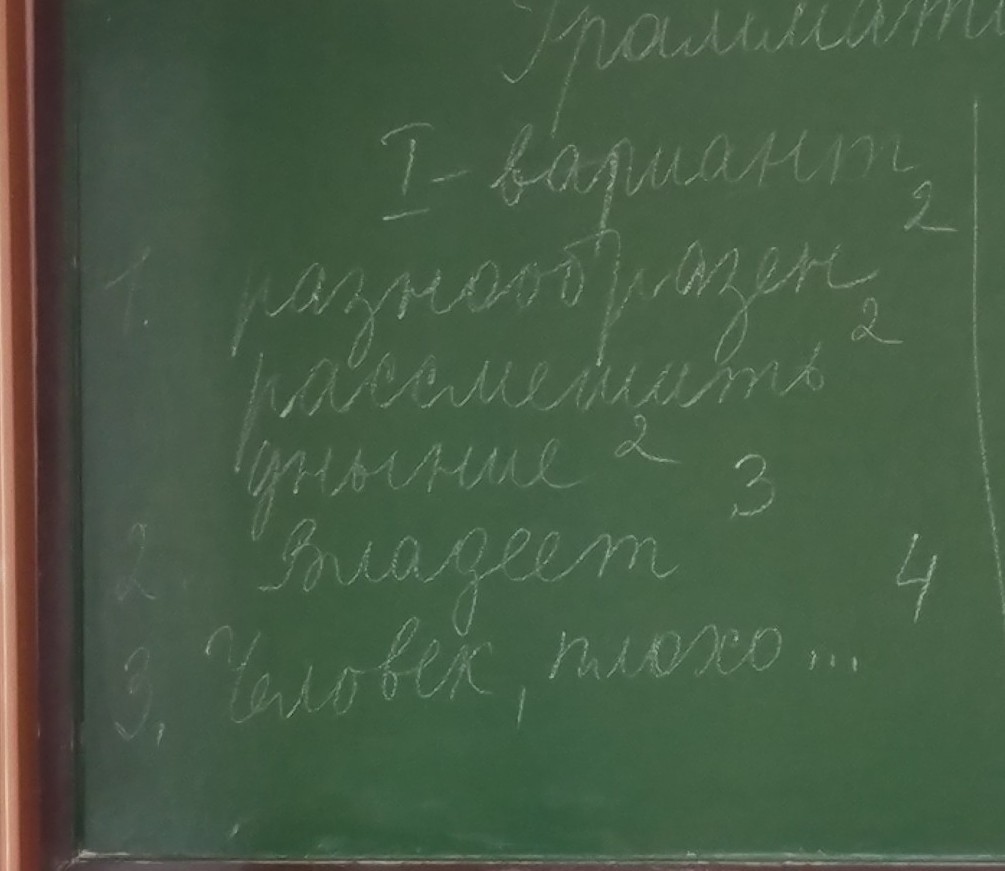 Граммати
I - вариант
1. разнообразен 2
рассмешить 2
уныние 2
2 Владеет 3
3. Человек, плохо ... 4